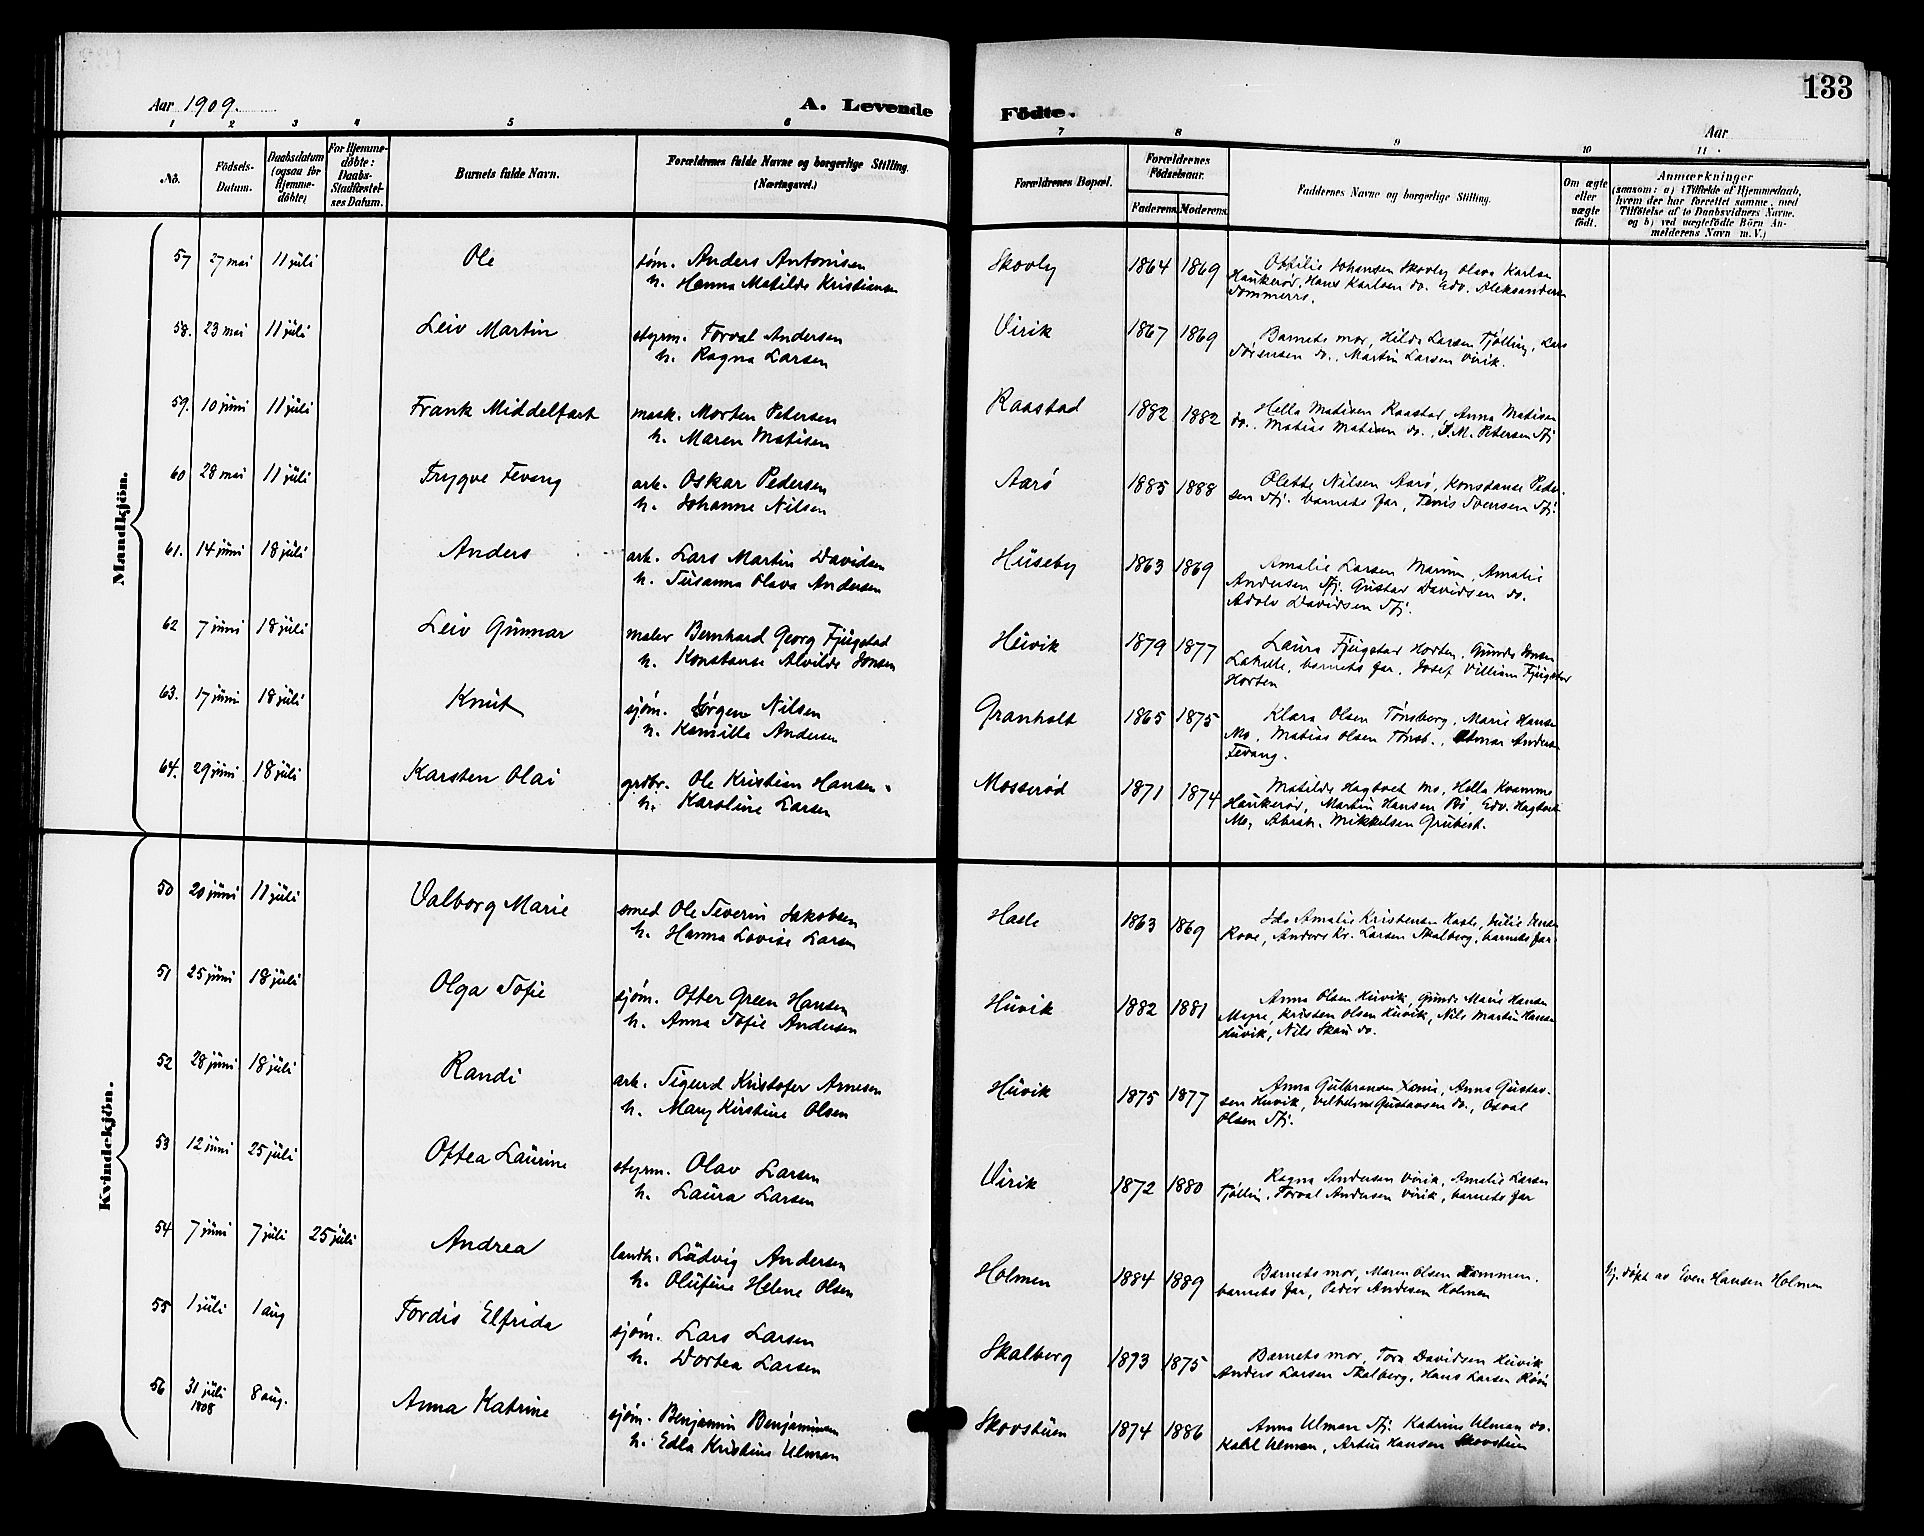 133
Aar 1909.
A. Levende Födte.
Aar
1 2 3 4 5 6 7 8 9 10 11
No.
Födsels-Datum.
Daabsdatum (ogsaa for Hjemme-döbte)
For Hjemme-döbte: Daabs-Stadfæstel-ses Datum.
Barnets fulde Navn.
Forældrenes fulde Navne og borgerlige Stilling. (Næringsvei.)
Forældrenes Bopæl.
Forældrenes Födselsaar.
Faderens. Moderens.
Faddernes Navne og borgerlige Stilling.
Om ægte eller uægte födt.
Anmærkninger
(saasom: a) i Tilfælde af Hjemmedaab,
hvem der har forrettet samme, med
Tilföielse af to Daabsvidners Navne.
og b) ved uægtefödte Börn An-
melderens Navn m. V.)
Mandkjön.
57 27 mai 11 juli Ole sjøm. Anders Antonisen Skovly 1864 1869 Ottilie Johansen Skovly Olava Karlsen
h. Hanna Matilde Kristiansen Haukerød, Hans Karlsen do. Edv. Aleksandersen
Sommerro.
58. 23 mai 11 juli Leiv Martin styrm. Torval Andersen Virik 1867 1869 Barnets mor, Hilda Larsen Tjølling, Lars
h. Ragna Larsen Sørensen do., Martin Larsen Virik.
59. 10 juni 11 juli Frank Middelfart mask. Morten Petersen Raastad 1882 1882 Hella Matisen Raastad, Anna Matisen
h. Maren Matisen do., Matias Matisen do., S. M. Petersen Sfj
60 28 mai 11 juli Trygve Fevang arb. Oskar Pedersen Aarø 1885 1888 Olette Nilsen Aarø, Konstanse Peder-
h. Johanne Nilsen sen Sfj. barnets far, Tenis Svensen Sfj.
61. 14 juni 18 juli Anders arb. Lars Martin Davidsen Huseby 1863 1869 Amalie Larsen Marum, Amalie
h. Susanna Olava Andersen Andersen Sfj. Gustav Davidsen do.
Adolv Davidsen Sfj.
62 7 juni 18 juli Leiv Gunnar maler Bernhard Georg Fjugstad Huvik 1879 1877 Laura Fjugstad Horten, Gunda Jonsen
h. Konstanse Alvilde Jonsen barnets far, Josef Villiam Fjugstad
Horten
63. 17 juni 18 juli Knut sjøm. Jørgen Nilsen Granholt 1865 1875 Klara Olsen Tønsberg, Marie Hansen
h. Kamilla Andersen Mo, Matias Olsen Tønsb., Andersen
Fevang.
64. 29 juni 18 juli Karsten Olai grdbr. Ole Kristian Hansen Mosserød 1871 1874 Matilde Hagtvet Mo, Hella Kvamme
h. Karoline Larsen Haukerød, Martin Hansen Bø, Edv. Hagtvet
Mo, Abrah. Mikkelsen Grubest.
Kvindekjön.
50 20 juni 11 juli Valborg Marie smed Ole Severin Jakobsen Hasle 1863 1869 Ida Amalie Kristensen Hasle, Julie Jensen
h. Hanna Lovise Larsen Rove, Anders Kr. Larsen Skalberg, barnets far.
51 25 juni 18 juli Olga Sofie sjøm. Ofter Green Hansen Huvik 1882 1881 Anna Olsen Huvik, Gunda Marie Hansen
h. Anna Sofie Andersen Myre, Kristen Olsen Huvik, Nils Martin Hansen
Huvik, Nils Skau do.
52 28 juni 18 juli Randi arb. Sigurd Kristofer Arnesen Huvik 1875 1877 Anna Gulbransen Anna Gustav-
h. Mary Kirstine Olsen sen Huvik, Vilhelm Gustavsen do., Osval
Olsen Sfj.
53 12 juni 25 juli Oftea Laurine styrm. Olav Larsen Virik 1872 1880 Ragna Andersen Virik, Amalie Larsen
h. Laura Larsen Tjølling, Torval Andersen Virik, barnets far
54 7 juni 7 juli 25 juli Andrea landh. Ludvig Andersen Holmen 1884 1889 Barnets mor, Maren Olsen Kammen. hj. døpt av Even Hansen Holmen
h. Olufine Helene Olsen barnets far, Peder Andersen Holmen
55 1 juli 1 aug Tordis Elfrida sjøm. Lars Larsen Skalberg 1893 1875 Barnets mor, Tora Davidsen Huvik
h. Dortea Larsen Anders Larsen Skalberg, Hans Larsen
56 31 juli 8 aug. Anna Katrine sjøm. Benjamin Benjaminsen Skovstuen 1874 1886 Anna Ulman Sfj. Katrine Ulman do.
1908 h. Edla Kristine Ulman Karl Ulman, Artur Hansen Skovstuen